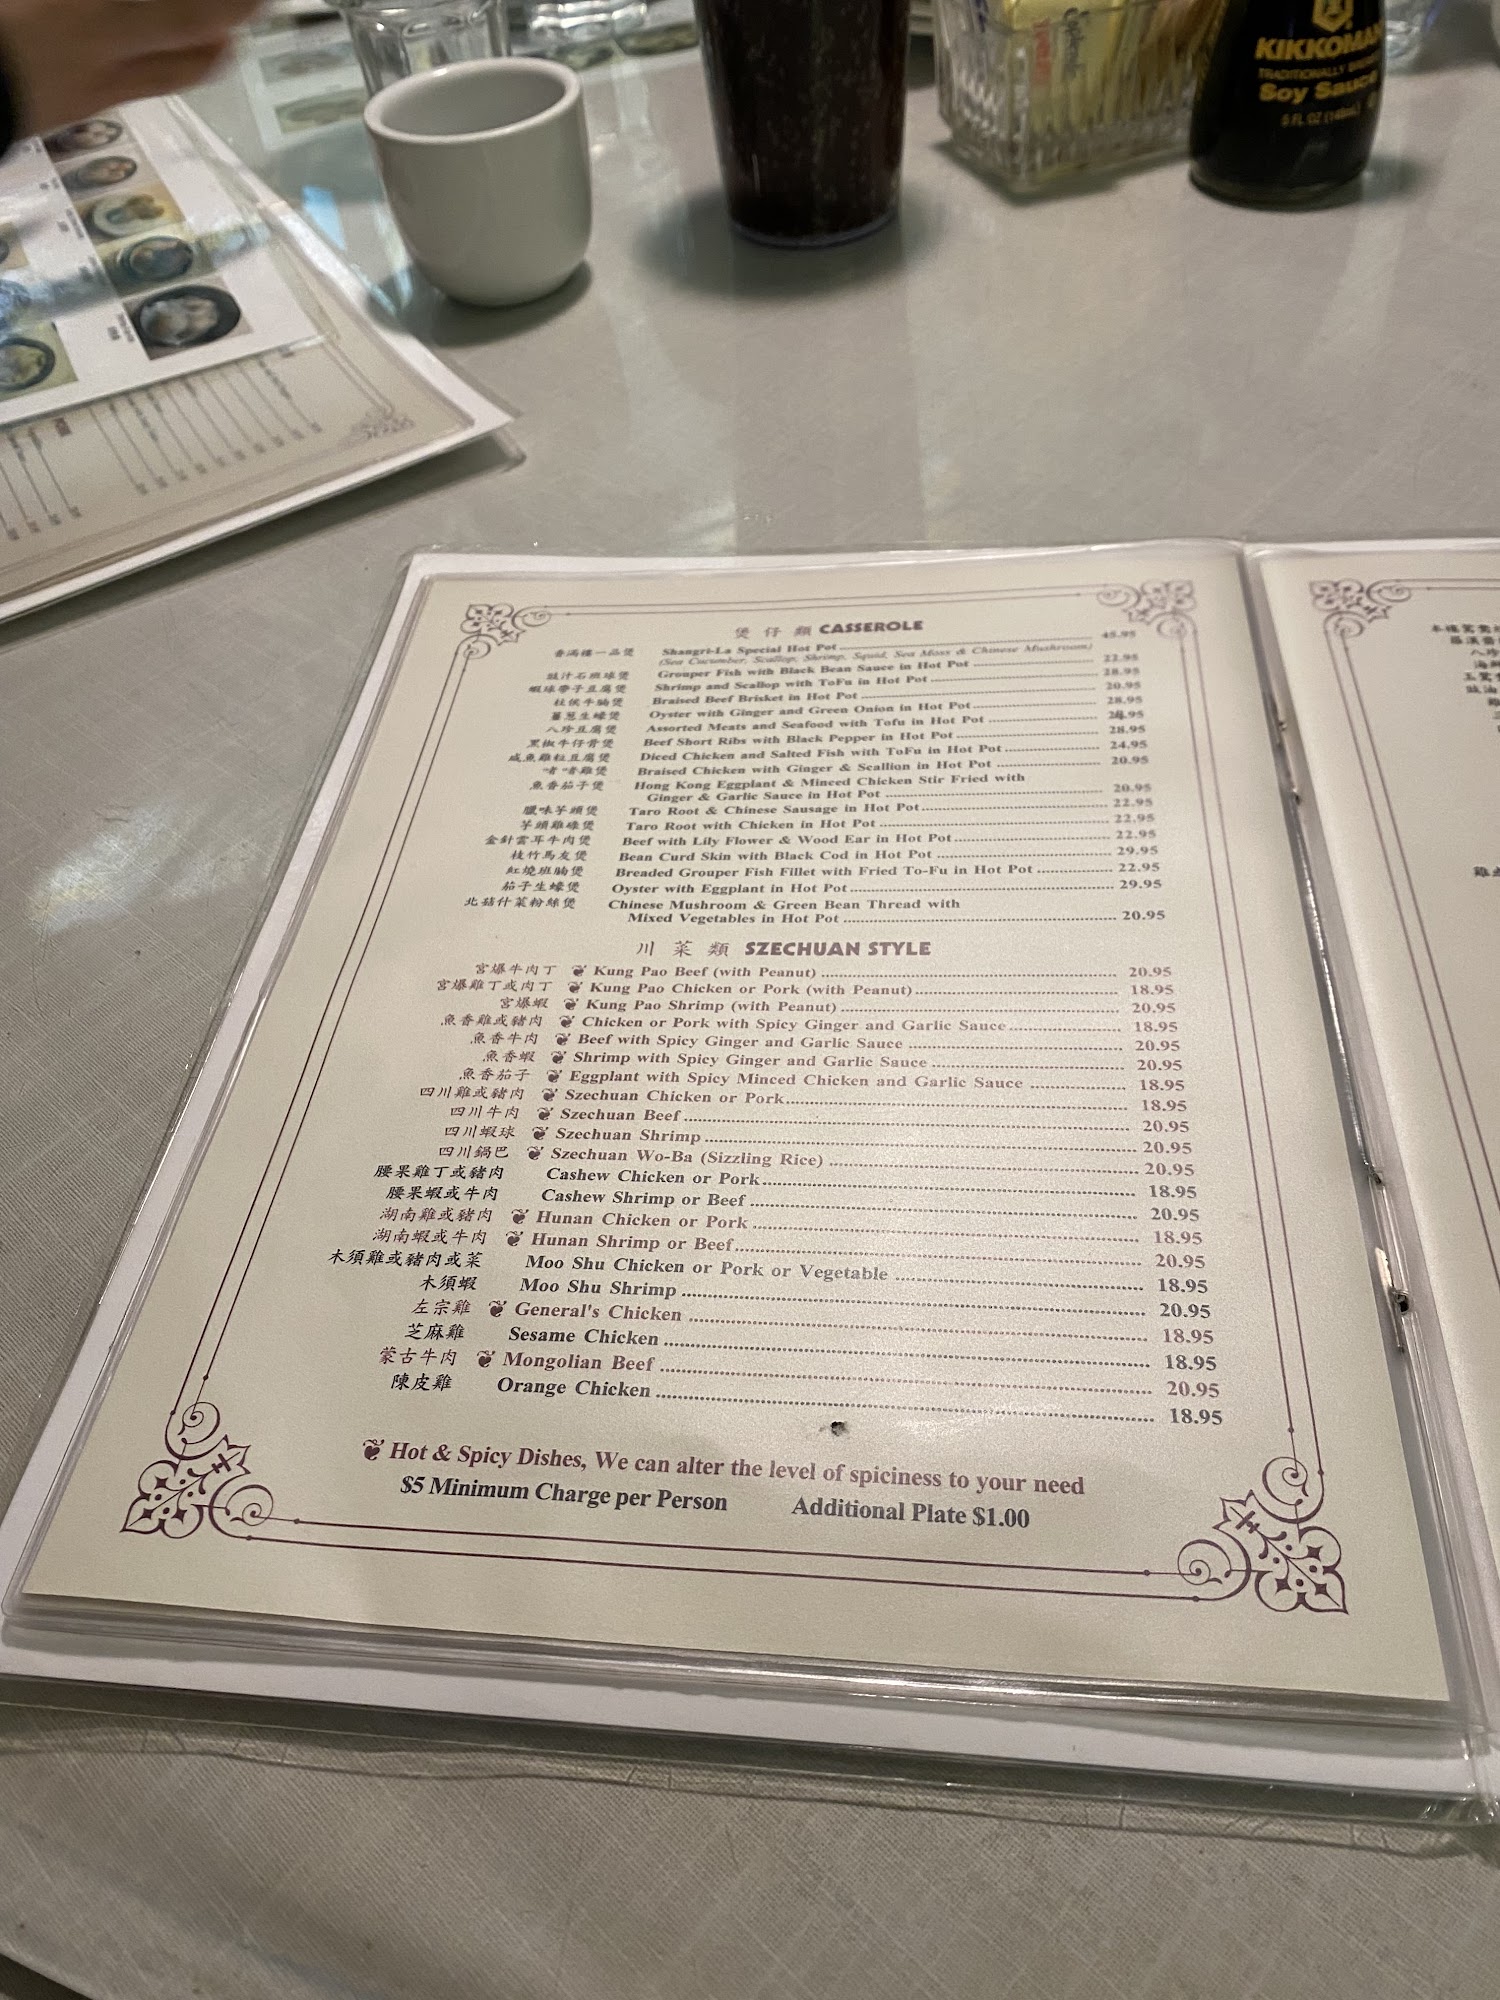 KIKKOMAN
Soy Sauce
5 FL OZ (148mL)
煲仔類 CASSEROLE
香滿樓一品煲 Shangri-La Special Hot Pot 45.95
(Sea Cucumber, Scallop, Shrimp, Squid, Sea Moss & Chinese Mushroom)
豉汁石班球煲 Grouper Fish with Black Bean Sauce in Hot Pot 22.95
蝦球帶子豆腐煲 Shrimp and Scallop with ToFu in Hot Pot 28.95
柱侯牛腩煲 Braised Beef Brisket in Hot Pot 20.95
薑蔥生蠔煲 Oyster with Ginger and Green Onion in Hot Pot 28.95
八珍豆腐煲 Assorted Meats and Seafood with Tofu in Hot Pot
黑椒牛仔骨煲 Beef Short Ribs with Black Pepper in Hot Pot 28.95
咸魚雞粒豆腐煲 Diced Chicken and Salted Fish with ToFu in Hot Pot 24.95
啫啫雞煲 Braised Chicken with Ginger & Scallion in Hot Pot 20.95
魚香茄子煲 Hong Kong Eggplant & Minced Chicken Stir Fried with
Ginger & Garlic Sauce in Hot Pot 20.95
臘味芋頭煲 Taro Root & Chinese Sausage in Hot Pot 22.95
芋頭雞煲 Taro Root with Chicken in Hot Pot 22.95
金針雲耳牛肉煲 Beef with Lily Flower & Wood Ear in Hot Pot 22.95
枝竹馬友煲 Bean Curd Skin with Black Cod in Hot Pot 29.95
紅燒班腩煲 Breaded Grouper Fish Fillet with Fried To-Fu in Hot Pot 22.95
茄子生蠔煲 Oyster with Eggplant in Hot Pot 29.95
北菇什菜粉絲煲 Chinese Mushroom & Green Bean Thread with
Mixed Vegetables in Hot Pot 20.95
川菜類 SZECHUAN STYLE
宮爆牛肉丁 Kung Pao Beef (with Peanut) 20.95
宮爆雞丁或肉丁 Kung Pao Chicken or Pork (with Peanut) 18.95
宮爆蝦 Kung Pao Shrimp (with Peanut) 20.95
魚香雞或豬肉 Chicken or Pork with Spicy Ginger and Garlic Sauce 18.95
魚香牛肉 Beef with Spicy Ginger and Garlic Sauce 20.95
魚香蝦 Shrimp with Spicy Ginger and Garlic Sauce 20.95
魚香茄子 Eggplant with Spicy Minced Chicken and Garlic Sauce 18.95
四川雞或豬肉 Szechuan Chicken or Pork 18.95
四川牛肉 Szechuan Beef 20.95
四川蝦球 Szechuan Shrimp 20.95
四川鍋巴 Szechuan Wo-Ba (Sizzling Rice) 20.95
腰果雞丁或豬肉 Cashew Chicken or Pork 18.95
腰果蝦或牛肉 Cashew Shrimp or Beef 20.95
湖南雞或豬肉 Hunan Chicken or Pork 18.95
湖南蝦或牛肉 Hunan Shrimp or Beef 20.95
木須雞或豬肉或菜 Moo Shu Chicken or Pork or Vegetable 18.95
木須蝦 Moo Shu Shrimp 20.95
左宗雞 General's Chicken 18.95
芝麻雞 Sesame Chicken 18.95
蒙古牛肉 Mongolian Beef 20.95
陳皮雞 Orange Chicken 18.95
Hot & Spicy Dishes, We can alter the level of spiciness to your need
$5 Minimum Charge per Person Additional Plate $1.00